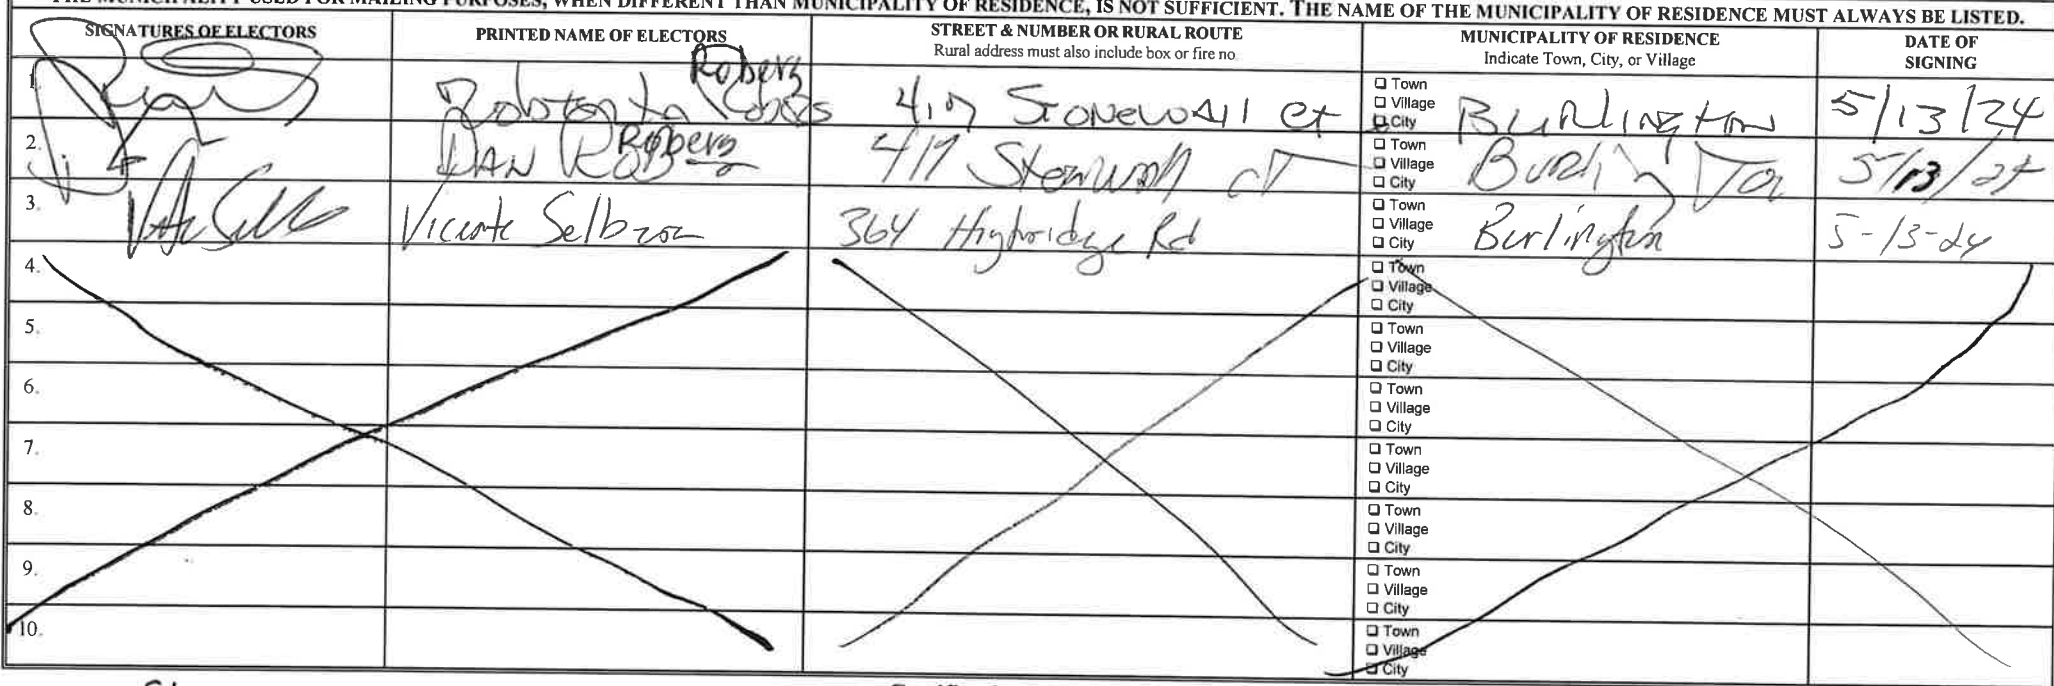 THE MUNICIPALITY USED FOR MAILING PURPOSES, WHEN DIFFERENT THAN MUNICIPALITY OF RESIDENCE, IS NOT SUFFICIENT. THE NAME OF THE MUNICIPALITY OF RESIDENCE MUST ALWAYS BE LISTED.
SIGNATURES OF ELECTORS
PRINTED NAME OF ELECTORS
STREET & NUMBER OR RURAL ROUTE
Rural address must also include box or fire no.
MUNICIPALITY OF RESIDENCE
Indicate Town, City, or Village
DATE OF
SIGNING
1.
Roberg
417 Stonewall ct
Town
Village
City
Burlington
5/13/24
2.
Roberg
DAN
417 Stonwall CT
Town
Village
City
Burlington
5/13/24
3.
Vicente
364 Highridge Rd
Town
Village
City
Burlington
5-13-24
4.
Town
Village
City
5.
Town
Village
City
6.
Town
Village
City
7.
Town
Village
City
8.
Town
Village
City
9.
Town
Village
City
10.
Town
Village
City